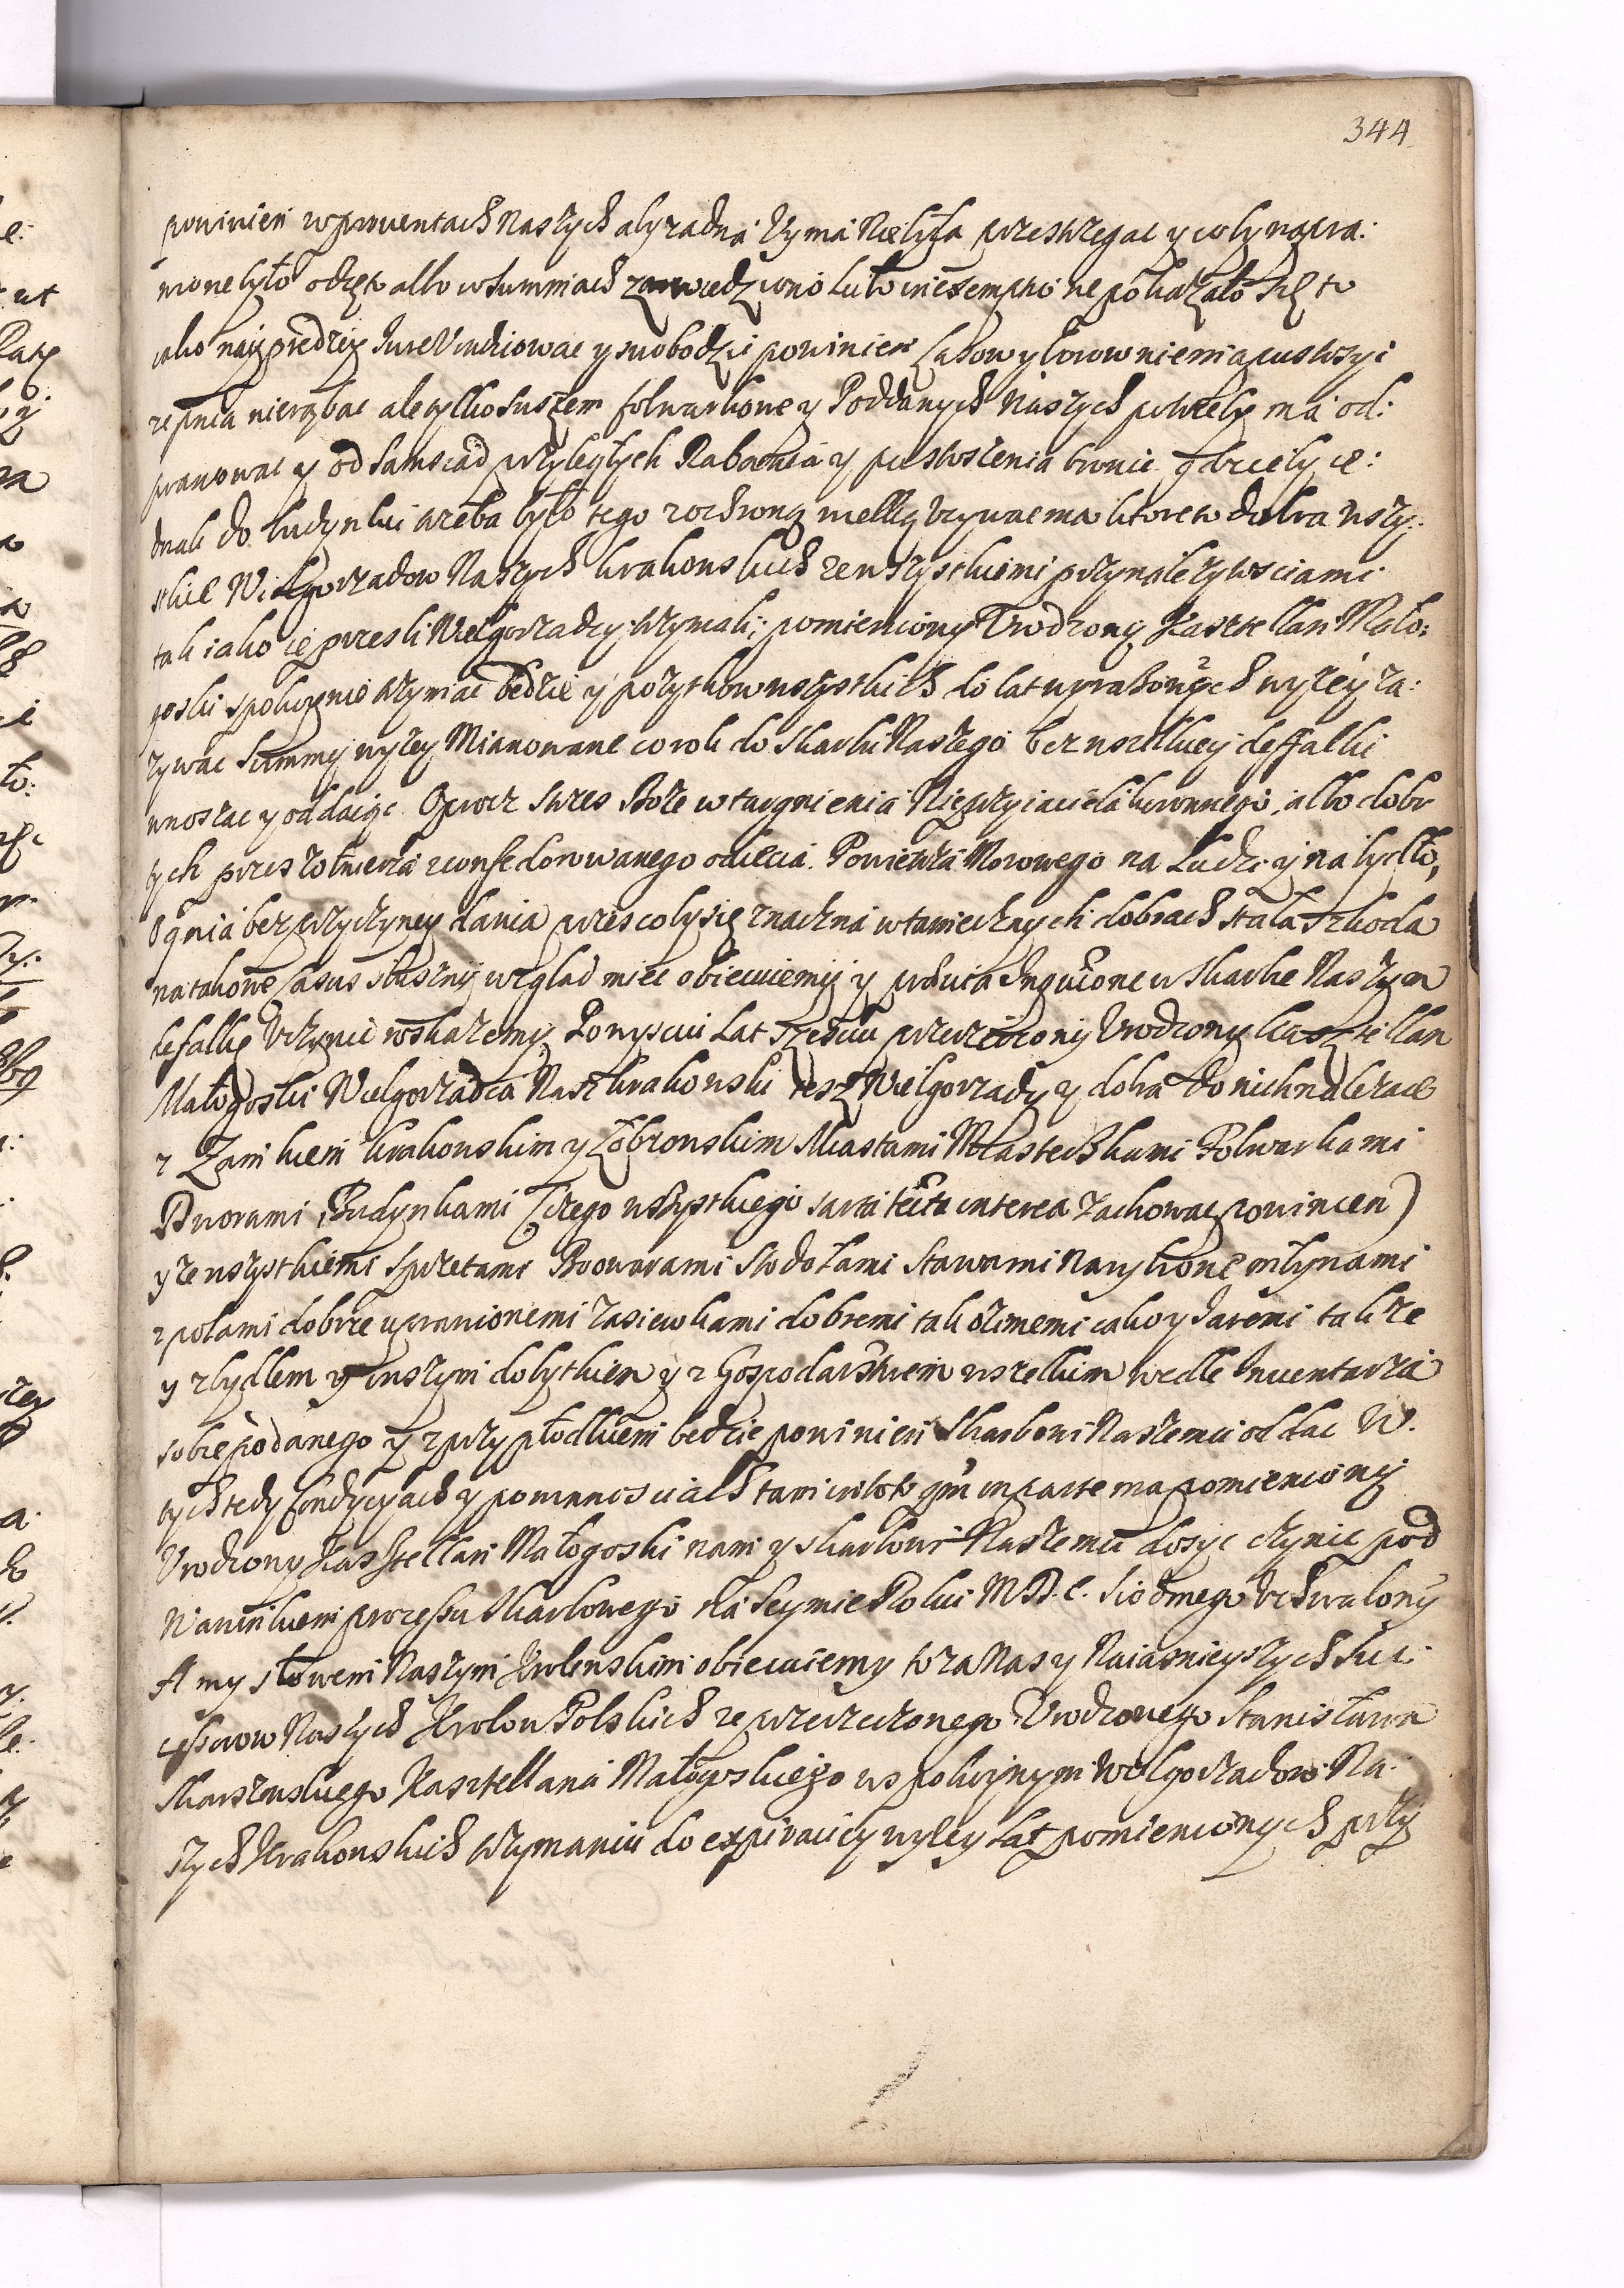 344
powinien w prowentach Naszych aby żadna Vyma Nie była przestrzegac y coby naprа:
wione było odięto albo w summach zawiedziono lubo in exemptione pokazało się to
iako nayprędzey Iure Vindicowac y swobodzic powinien Lasow y borow niema pustoszyc i
z pnia nierąbac ale tylko suszem folwarkowe y Poddanych Naszych potrzeby ma od:
prawowac y od samsiad przyległych Rabania y pustoszenia bronic gdzieby ie:
dnak do budynku trzeba było tego z ochroną wielką Vzywac ma ktore to dobra wszy:
stkie Wielgorzadow Naszych krakowskich ze wszystkiemi przynaleztosciami
tak iako ie przeszli Wielgorządcy trzymali; pomieniony Vrodzony Kasztellan Mało:
goski spokoynie trzymac będzie y pozytkow wszystkich do lat wyrazonych wyzey za:
zywac Summy wyzey Mianowane co rok do skarbu Naszego bez wszelkiey deffalki
wnosząc y oddaiąc Oprocz strzes Boze wtargnienia Nieprzyiaciela koronnego, albo dobr
tych przez zołnierza zconfederowanego odięcia. Powietrza Morowego na Ludzi y na bydło,
Ognia bez przyczyney dania przes coby się znaczna w tamecznych dobrach stała szkoda
na takowe Casus słuszny wzgląd miec obiecuiemy y prawia Inquisitione w skarbie Naszym
defalkę Vczynic wskazemy Po wysciu Lat szesciu przerzeczony Vrodzony kasztellan
Małogoski Wielgorządca Nasz krakowski tesz Wielgorzady y dobra do nich nalezące
z Zamkiem krakowskim y Łobzowskim Miastami Miasteczkami Folwarkami
Dworami, Budynkami (czego wszystkiego sarta tecta interea zachowac powinien)
y ze wszystkiemi sprzetami Browarami Stodołami Stawami Narybione młynami
z polami dobrze uprawionemi zasiewkami dobremi tak ozimemi iako y Iaremi takze
y z bydlem y inszym dobytkiem y z Gospodarstwem wszelkim wedle Inwentarza
sobie podanego y z przypłodkiem będzie powinien Skarbowi Naszemu oddac W.
tych tedy Condycyach y powinnosciach tam in toto qm in parte ma pomieniony
Vrodzony Kasztellan Małogoski nam y skarbowi Naszemu dosyc czynic pod
Warunkiem processu skarbowego na Seymie Roku M.D.C. Siodmego Vchwalonÿ
A my słowem Naszym Krolewskim obiecuiemy to za Nas y Naiasnieyszych Suc:
cessorow Naszych Krolow Polskich ze przerzeczonego Vrodzonego Stanisława
Skarszewskiego Kasztellana Małogoskiego w spokoynym Wielgorzadow Na:
szych Krakowskich trzymaniu do expiraciey wyzey Lat pomienionych przy